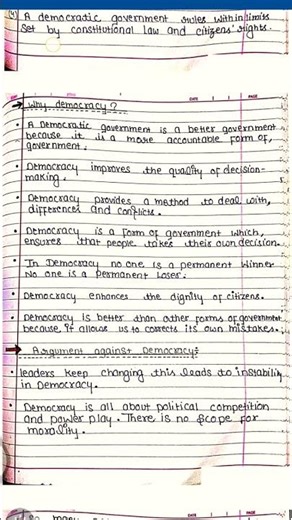 (4) A democratic government rules within limits
set by constitutional law and citizens' rights.
DATE PAGE
→ Why democracy?
• A Democratic government is a better government
because it is a more accountable form of
government.
• Democracy improves the quality of decision-
making.
• Democracy provides a method to deal with,
differences and conflicts.
• Democracy is a form of government which,
ensures that people takes their own decision.
• In Democracy no one is a permanent winner
No one is a permanent loser.
• Democracy enhances the dignity of citizens.
• Democracy is better than other forms of government
because, if allows us to corrects its own mistakes.
→ Argument against Democracy:
• leaders keep changing this leads to instability
in Democracy.
• Democracy is all about political competition
and power play. There is no scope for
morality.
DATE PAGE
many